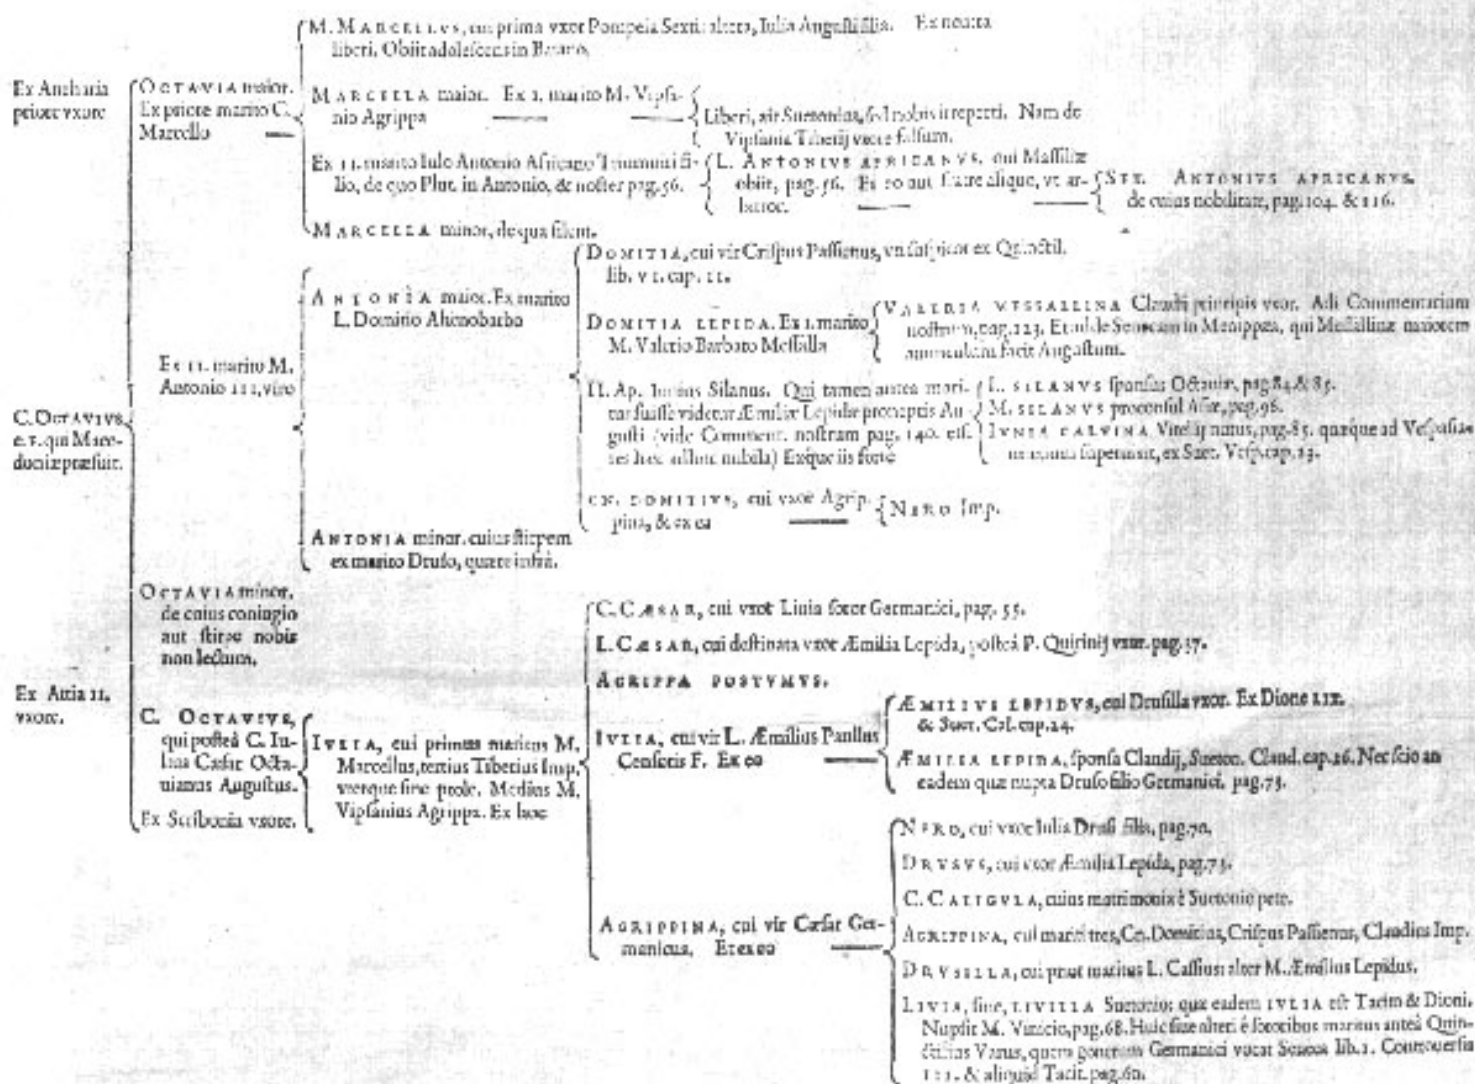 M. MARCELLVS, cui prima vxor Pompeia Sexti: altera, Iulia Augusti filia. Ex neutra
liberi. Obiit adolescens in Baiano.
Ex Ancharia
priore vxore
OCTAVIA maior.
Ex priore marito C.
Marcello
MARCELLA maior. Ex I. marito M. Vipsa-
nio Agrippa
Liberi, ait Suetonius, sed nobis irreperti. Nam de
Vipsania Tiberij vxore falsum.
Ex II. marito Iulo Antonio Africano Triumuiri fi-
lio, de quo Plut. in Antonio, & noster pag. 56.
L. ANTONIVS AFRICANVS, qui Massiliæ
obiit, pag. 56. Ex eo aut fratre aliquo, vt ar-
bitror.
SEX. ANTONIVS AFRICANVS.
de cuius nobilitate, pag. 104. & 116.
MARCELLA minor, de qua silent.
Ex II. marito M.
Antonio III. viro
ANTONIA maior. Ex marito
L. Domitio Ahenobarbo
DOMITIA, cui vir Crispus Passienus, vti suspicor ex Quinctil.
lib. VI. cap. II.
DOMITIA LEPIDA. Ex I. marito
M. Valerio Barbato Messalla
VALERIA MESSALLINA Claudij principis vxor. Adi Commentarium
nostrum, pag. 123. Et inde Senecam in Menippæa, qui Messallinæ maiorem
auunculum facit Augustum.
II. Ap. Iunius Silanus. Qui tamen antea mari-
tus fuisse videtur Æmiliæ Lepidæ proneptis Au-
gusti (vide Comment. nostrum pag. 140. etsi
res hæc adhuc nubila) Exque iis forte
L. SILANVS sponsus Octauiæ, pag. 84. & 85.
M. SILANVS proconsul Asiæ, pag. 96.
IVNIA CALVINA Vitellij nurus, pag. 85. quæque ad Vespasia-
ni superauit, ex Suet. Vesp. cap. 23.
CN. DOMITIVS, cui vxor Agrip-
pina, & ex ea
NERO Imp.
ANTONIA minor. cuius stirpem
ex marito Druso, quære infrà.
C. OCTAVIVS
C. F. qui Mace-
doniæ præfuit.
OCTAVIA minor.
de cuius coniugio
aut stirpe nobis
non lectum.
Ex Attia II.
vxore.
C. OCTAVIVS,
qui posteà C. Iu-
lius Cæsar Octa-
uianus Augustus.
Ex Scribonia vxore.
IVLIA, cui primus maritus M.
Marcellus, tertius Tiberius Imp.
vterque sine prole. Medius M.
Vipsanius Agrippa. Ex hoc
C. CÆSAR, cui vxor Liuia soror Germanici, pag. 55.
L. CÆSAR, cui destinata vxor Æmilia Lepida, posteà P. Quirinij vxor. pag. 57.
AGRIPPA POSTVMVS.
IVLIA, cui vir L. Æmilius Paullus
Censoris F. Ex eo
ÆMILIVS LEPIDVS, cui Drusilla vxor. Ex Dione LIX.
& Suet. Cal. cap. 24.
ÆMILIA LEPIDA, sponsa Claudij, Sueton. Claud. cap. 26. Nec scio an
eadem quæ nupta Druso filio Germanici. pag. 73.
AGRIPPINA, cui vir Cæsar Ger-
manicus. Et ex eo
NERO, cui vxor Iulia Drusi filia, pag. 70.
DRVSVS, cui vxor Æmilia Lepida, pag. 73.
C. CALIGVLA, cuius matrimonia è Suetonio pete.
AGRIPPINA, cui mariti tres, Cn. Domitius, Crispus Passienus, Claudius Imp.
DRVSILLA, cui prior maritus L. Cassius: alter M. Æmilius Lepidus.
LIVIA, siue, LIVILLA Suetonio; quæ eadem IVLIA est Tacito & Dioni.
Nupsit M. Vinicio, pag. 68. Huic siue alteri è sororibus maritus anteà Quin-
ctilius Varus, quem generum Germanici vocat Seneca lib. I. Controuersia
III. & aliquid Tacit. pag. 60.